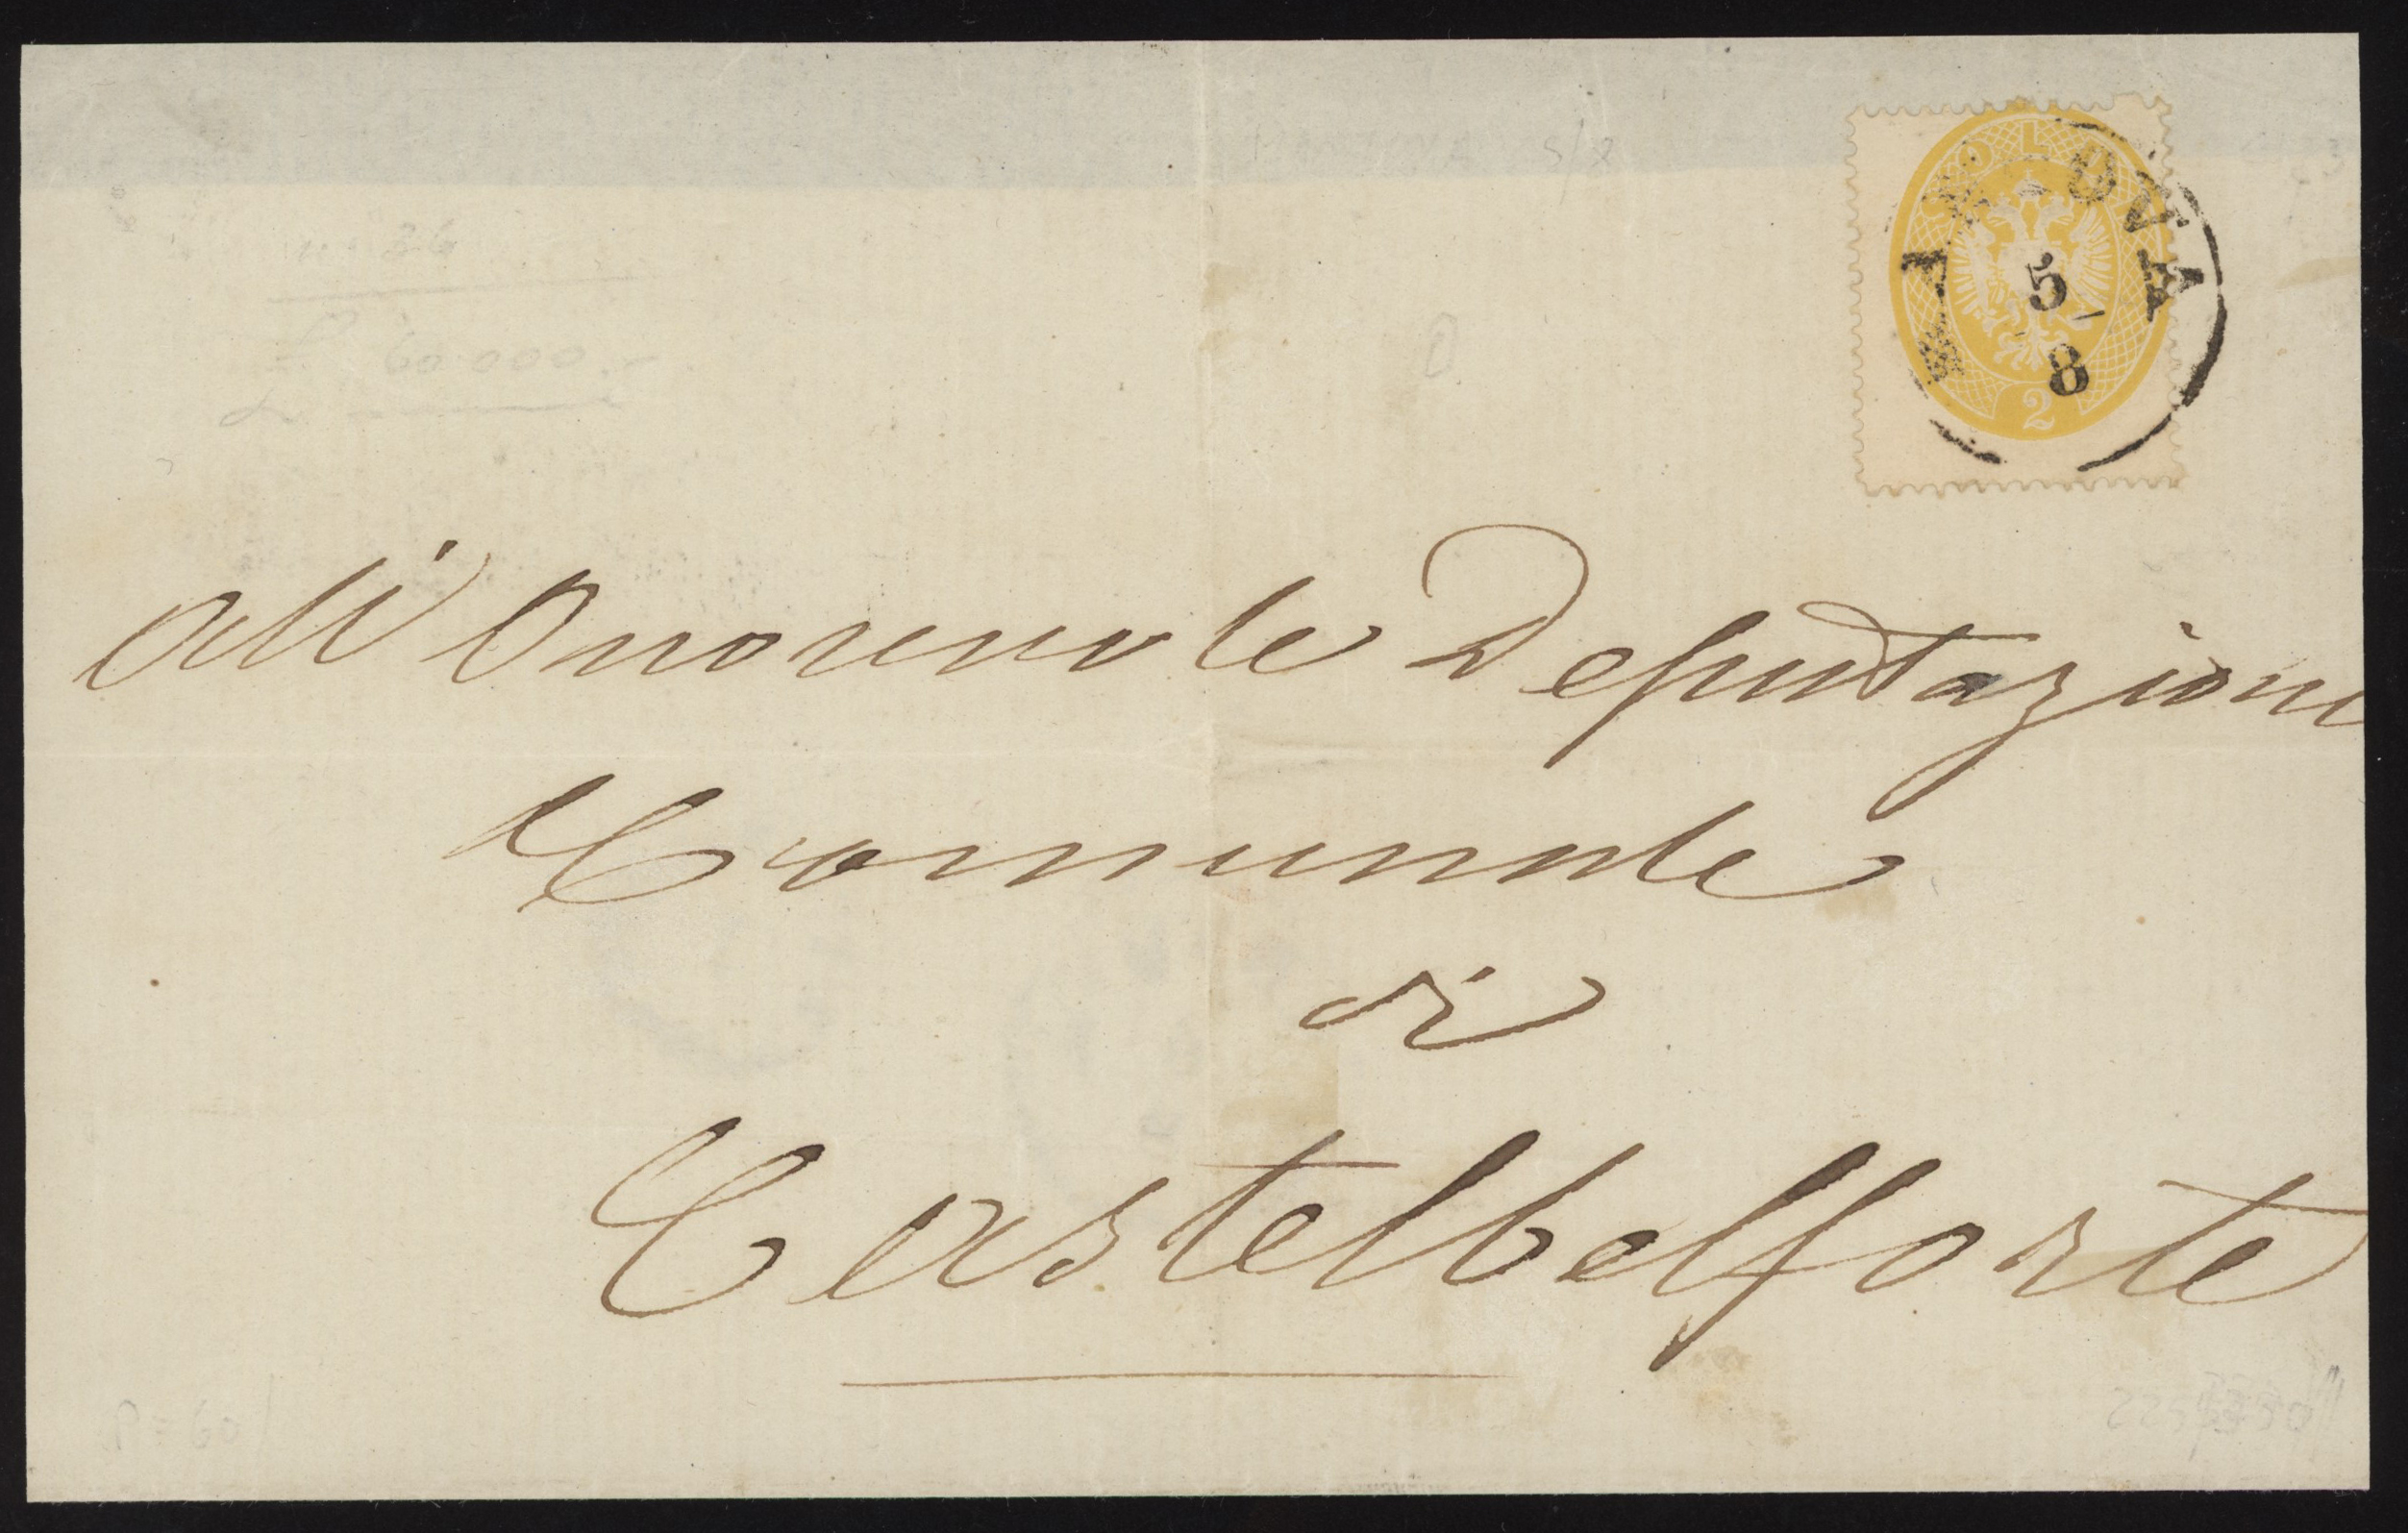 MANTOVA
5/
8
SOLDI
2
36
60 000.-
All' Onorevole Deputazione
Comunale
di
Castelbelforte